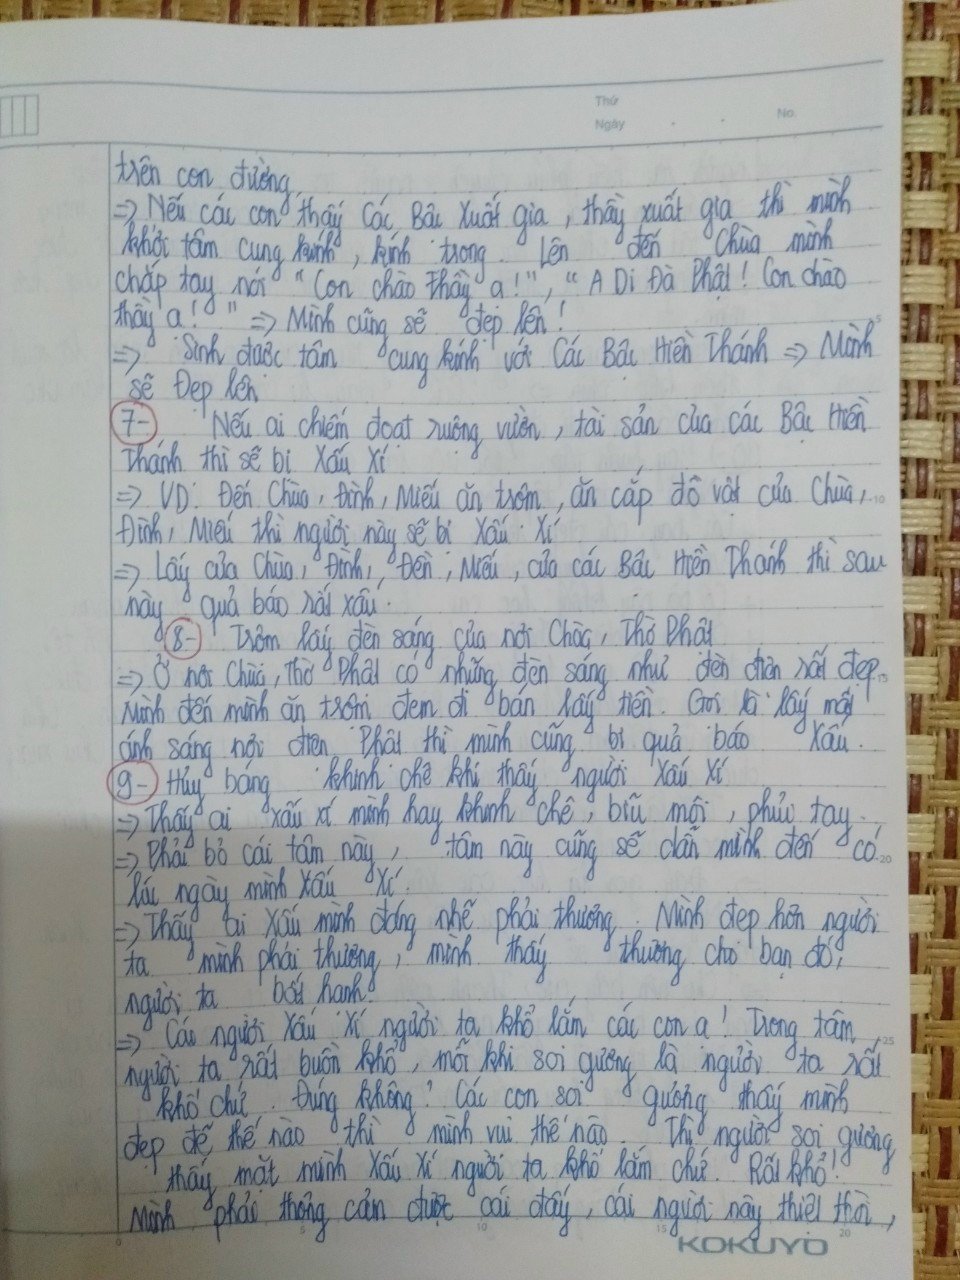 Thứ
Ngày . . No.
trên con đường
=> Nếu các con thấy Các Bậc Xuất gia, thầy xuất gia thì mình
khởi tâm cung kính, kính trọng. Lên đến Chùa mình
chắp tay nói "Con chào Thầy ạ!", "A Di Đà Phật! Con chào
thầy ạ!" => Mình cũng sẽ đẹp lên!
=> Sinh được tâm cung kính với Các Bậc Hiền Thánh => Mình
sẽ Đẹp lên.
7- Nếu ai chiếm đoạt ruộng vườn, tài sản của các Bậc Hiền
Thánh thì sẽ bị Xấu Xí
=> VD: Đến Chùa, Đình, Miếu ăn trộm, ăn cắp đồ vật của Chùa,
Đình, Miếu thì người này sẽ bị Xấu Xí
=> Lấy của Chùa, Đình, Đền, Miếu, của các Bậc Hiền Thánh thì sau
này quả báo rất xấu
8- Trộm lấy đèn sáng của nơi Chùa, Thờ Phật
=> Ở nơi Chùa, Thờ Phật có những đèn sáng như đèn điện rất đẹp
Mình đến mình ăn trộm đem đi bán lấy tiền. Gọi là lấy mất
ánh sáng nơi điện Phật thì mình cũng bị quả báo Xấu.
9- Hủy báng khinh chê khi thấy người Xấu Xí
=> Thấy ai xấu xí mình hay khinh chê, bĩu môi, phủi tay.
=> Phải bỏ cái tâm này, tâm này cũng sẽ dẫn mình đến có
lúc ngày mình Xấu Xí.
=> Thấy ai Xấu mình đáng nhẽ phải thương. Mình đẹp hơn người
ta mình phải thương, mình thấy thương cho bạn đó,
người ta bất hạnh.
=> Các người Xấu Xí người ta khổ lắm các con ạ! Trong tâm
người ta rất buồn khổ, mỗi khi soi gương là người ta rất
khổ chứ. Đúng không? Các con soi gương thấy mình
đẹp đẽ thế nào thì mình vui thế nào. Thì người soi gương
thấy mặt mình Xấu Xí người ta khổ lắm chứ. Rất khổ!
Mình phải thông cảm được cái đấy, cái người này thiệt thòi,
KOKUYO